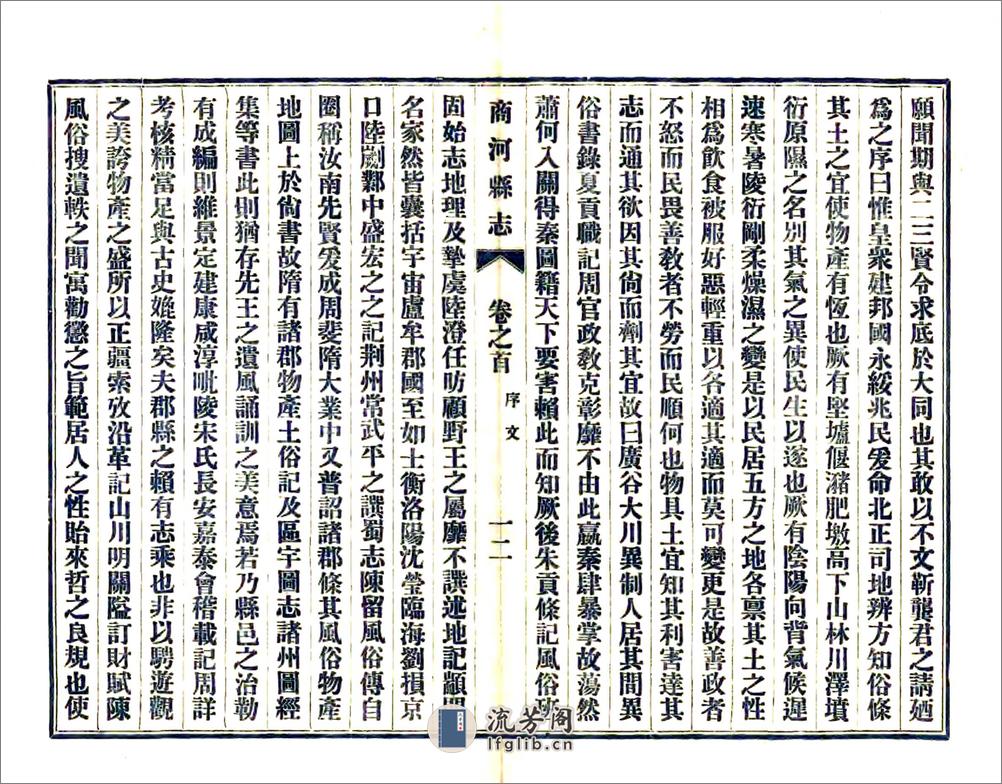 願聞期與二三賢令求底於大同也其敢以不文靳龔君之請廼
爲之序曰惟皇衆建邦國永綏兆民爰命北正司地辨方知俗條
其土之宜使物產有恆也厥有堅壚偃瀦肥墽高下山林川澤墳
衍原隰之名別其氣之異使民生以遂也厥有陰陽向背氣候遲
速寒暑陵衍剛柔燥濕之變是以民居五方之地各禀其土之性
相爲飲食被服好惡輕重以各適其適而莫可變更是故善政者
不怒而民畏善教者不勞而民順何也物具土宜知其利害達其
志而通其欲因其尙而劑其宜故曰廣谷大川異制人居其間異
俗書錄夏貢職記周官政教克彰靡不由此嬴秦肆暴掌故蕩然
蕭何入關得秦圖籍天下要害賴此而知厥後朱貢條記風俗班
商河縣志
卷之首
序文
一二
固始志地理及摯虞陸澄任昉顧野王之屬靡不譔述地記顓門
名家然皆囊括宇宙盧牟郡國至如士衡洛陽沈瑩臨海劉損京
口陸劌鄴中盛宏之之記荆州常武平之譔蜀志陳留風俗傳自
圈稱汝南先賢爰成周斐隋大業中又普詔諸郡條其風俗物產
地圖上於尙書故隋有諸郡物產土俗記及區宇圖志諸州圖經
集等書此則猶存先王之遺風誦訓之美意焉若乃縣邑之治勒
有成編則維景定建康咸淳毗陵宋氏長安嘉泰會稽載記周詳
考核精當足與古史媲隆矣夫郡縣之賴有志乘也非以騁遊觀
之美誇物產之盛所以正疆索攷沿革記山川明關隘訂財賦陳
風俗搜遺軼之聞寓勸懲之旨範居人之性貽來哲之良規也使
流芳阁
lfglib.cn